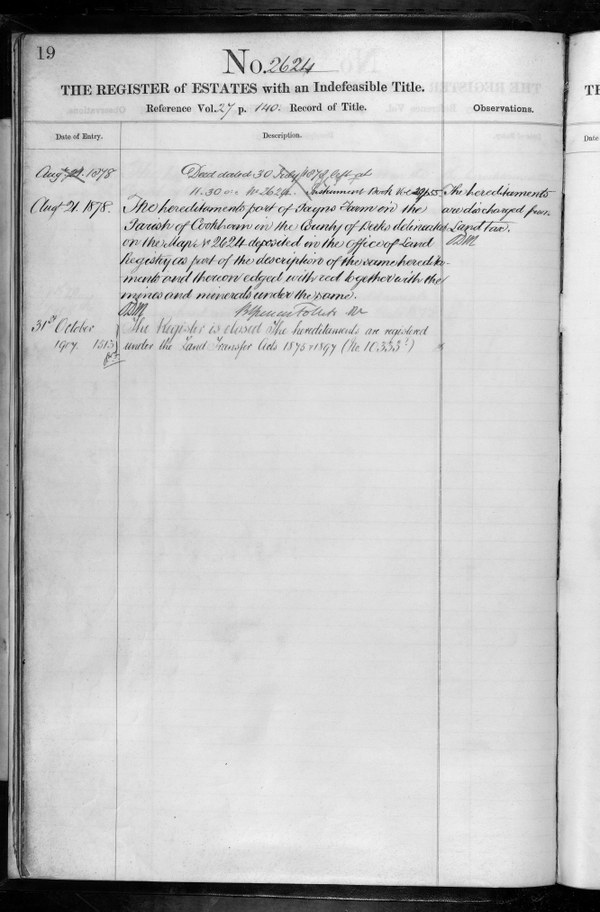 19
No. 2624
THE REGISTER of ESTATES with an Indefeasible Title.
Reference Vol. 27 p. 140. Record of Title.
Observations.
Date of Entry.
Description.
Augt 21. 1878
Deed dated 30 July 1878 left at
11.30 No 2624. Instrument Book Vol
Augt 21. 1878.
The hereditaments part of Farm in the
Parish of Cookham in the County of Berks delineated
on the Map No 2624 deposited in the Office of Land
Registry as part of the description of the same heredita-
ments and thereon edged with red together with the
mines and minerals under the same.
The hereditaments
are discharged from
Land Tax.
31st October
1907.
The Register is closed The hereditaments are registered
under the Land Transfer Acts 1875 & 1897 (No. 10333)
TH
Date